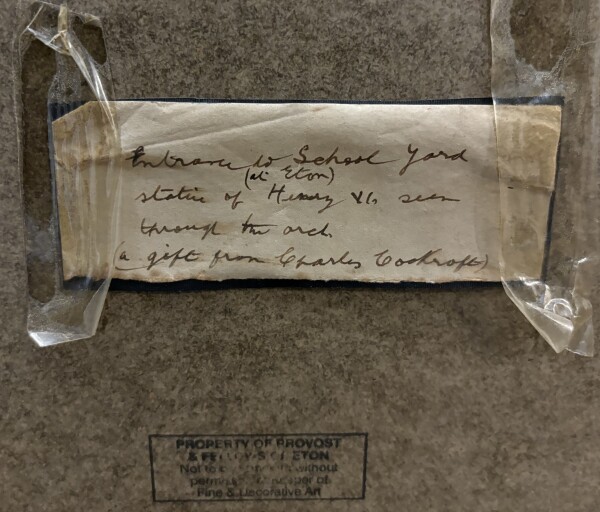 Entrance to School Yard
(at Eton)
statue of Henry VI. seen
through the arch.
(a gift from Charles Cockroft)
PROPERTY OF PROVOST
& FELLOWS OF ETON
Not to without
of
Fine & Decorative Art